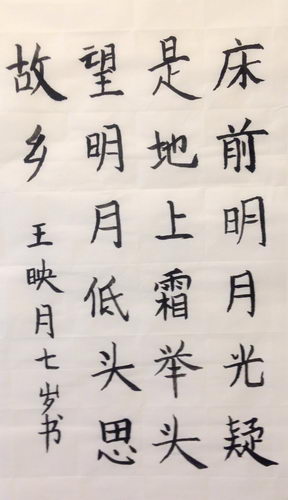 床前明月光疑
是地上霜举头
望明月低头思
故乡
王映月七岁书